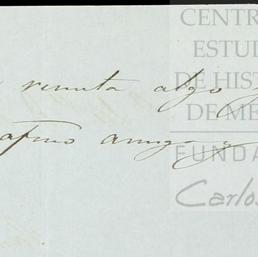 remita algo
afmo amigo y
CENTR
ESTUD
DE HIST
DE MÉ
FUNDA
Carlos